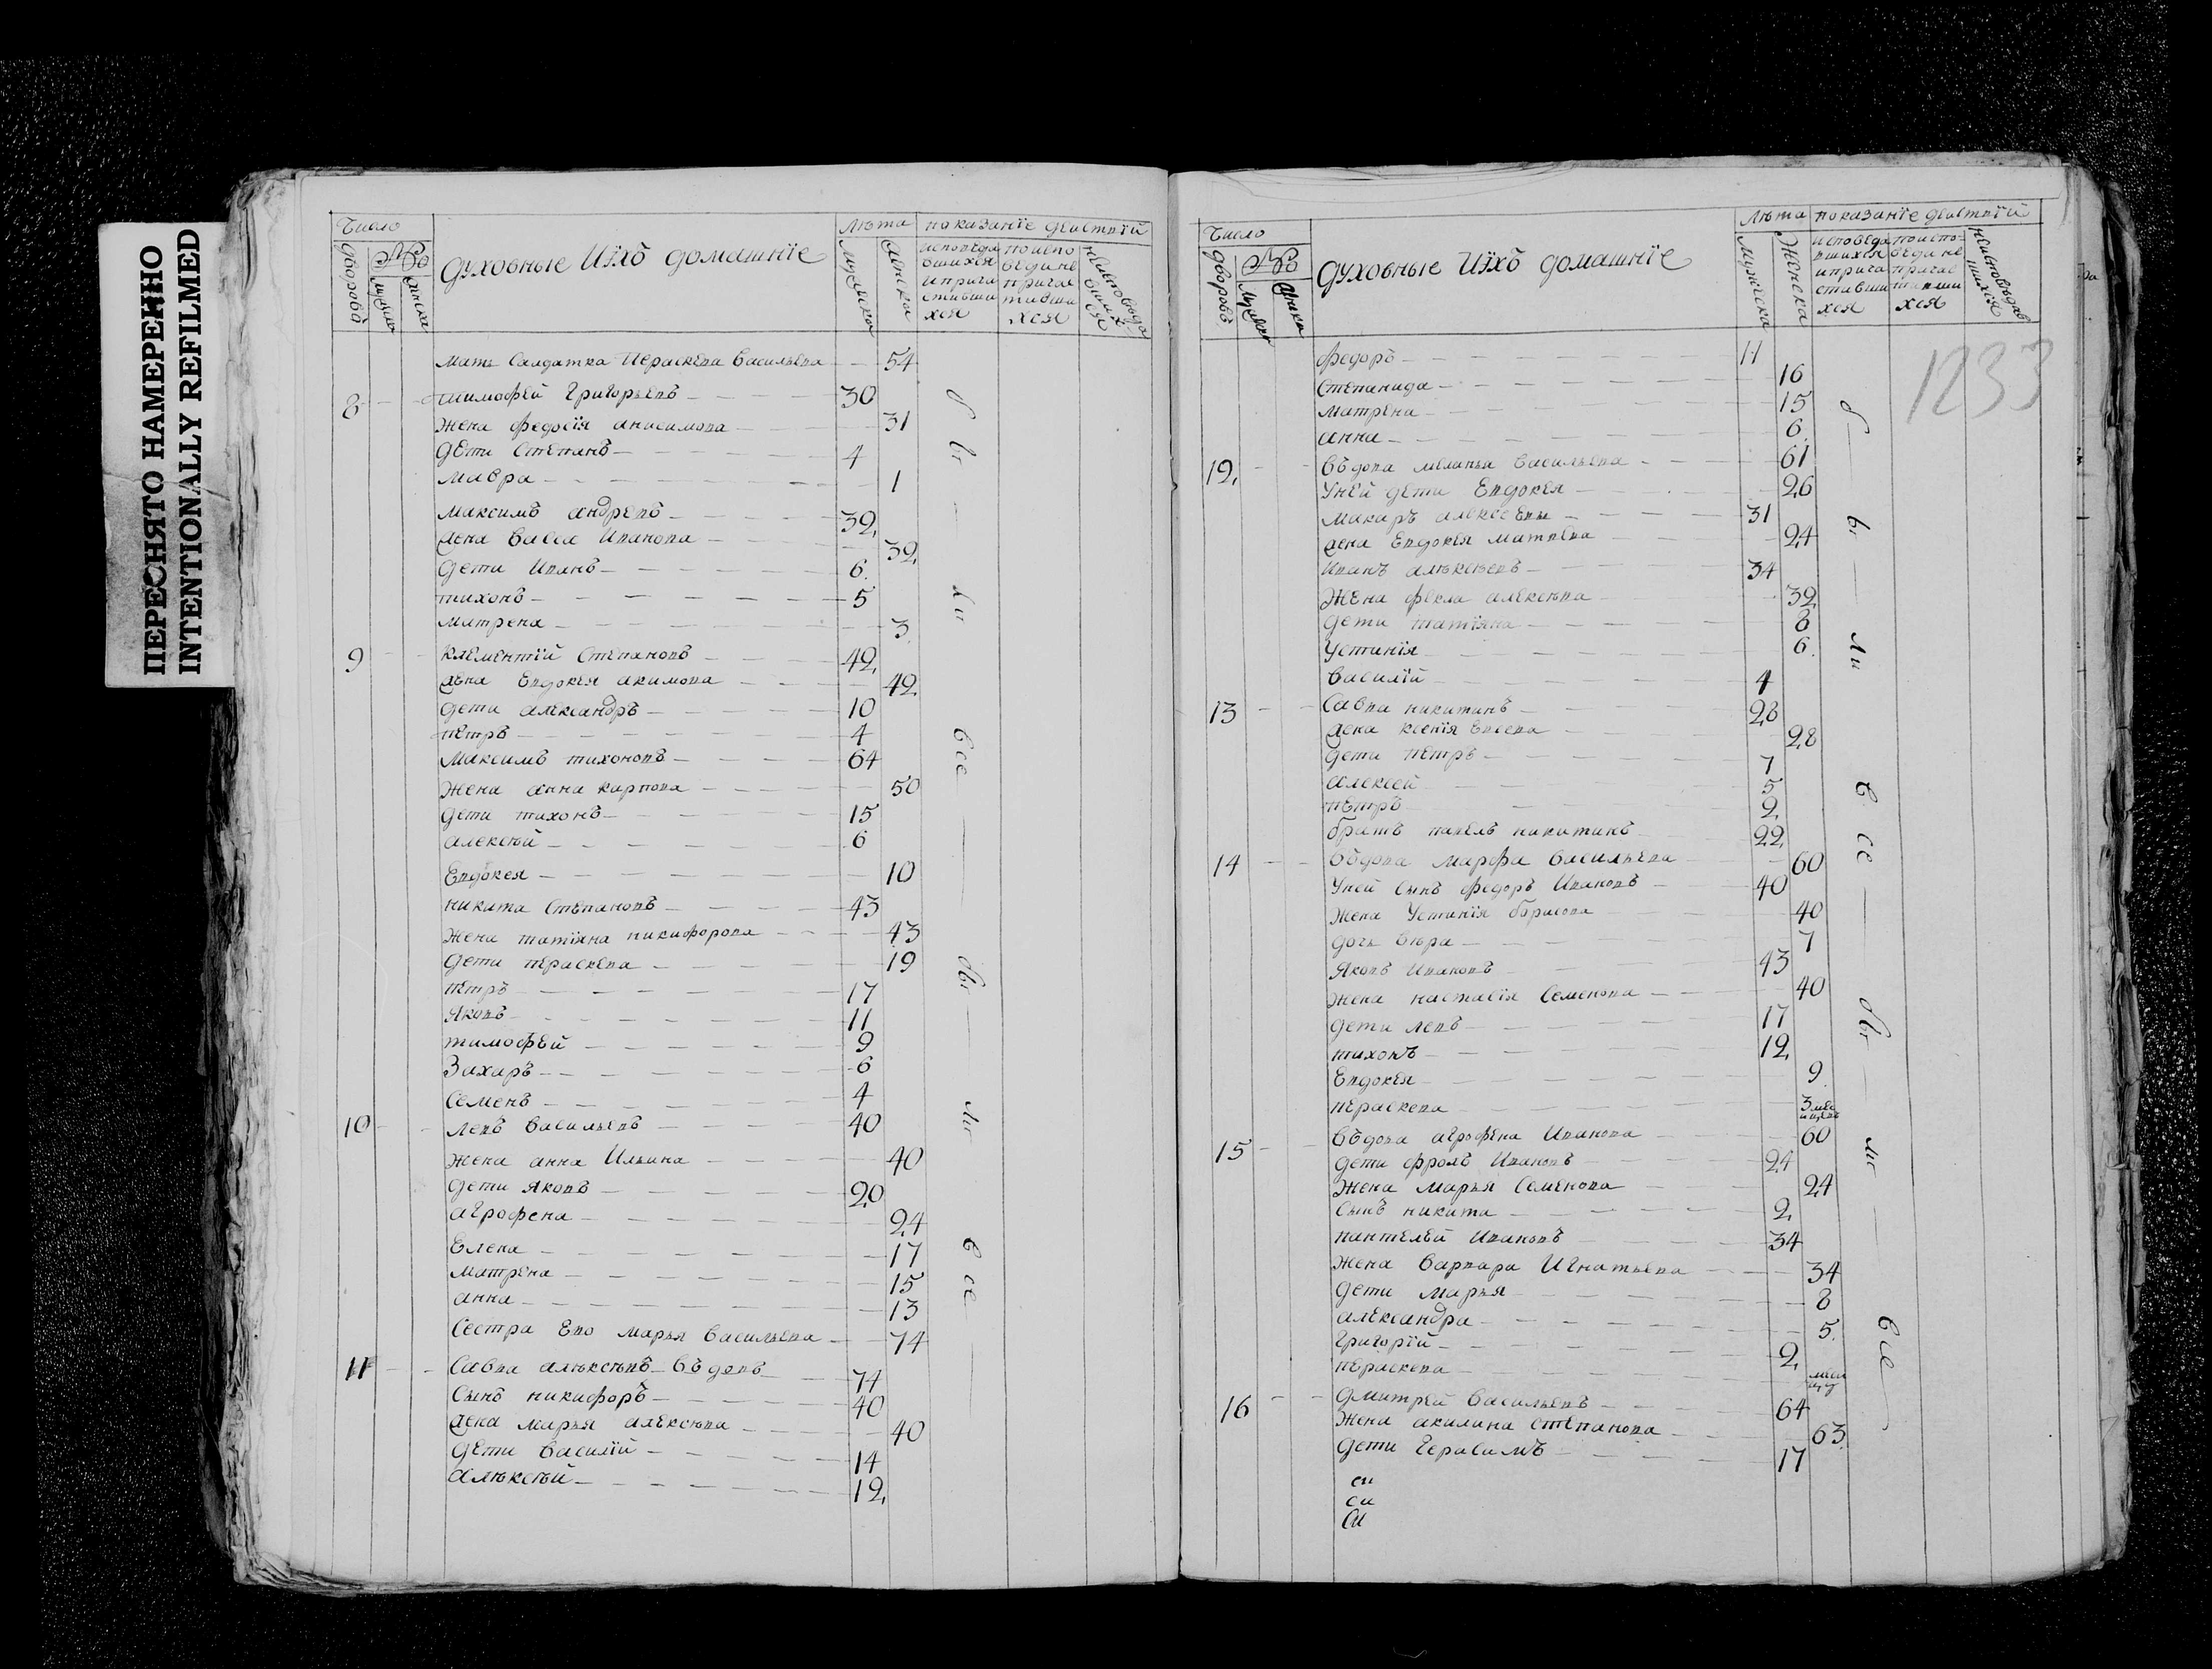 ПЕРЕСНЯТО НАМЕРЕННО
INTENTIONALLY REFILMED
Число
Лѣта
показанїе действїй
дворовъ
духовные Ихъ домашнїе
Мать Салдатка Пераскева Васильева 54
8 Тимофей Григорьевъ 30
жена Федосїя анисимова 31
дети Степанъ 4
Мавра 1
Максимъ андревъ 32
жена Васса Иванова 32
дети Иванъ 6
тихонъ 5
матрена 3
9 Клементїй Степановъ 42
жена Евдокея акимова 42
дети александръ 10
петръ 4
Максимъ тихоновъ 64
жена анна карпова 50
дети тихонъ 15
алексѣй 6
Евдокея 10
никита Степановъ 43
жена татїяна никифорова 43
дети пераскева 19
петръ 17
Яковъ 11
тимофей 9
Захаръ 6
Семенъ 4
10 левъ Васильевъ 40
жена анна Ильина 40
дети Яковъ 20
агрофена 24
Елена 17
матрена 15
анна 13
Сестра Ево марья Васильева 74
11 Савва алѣксѣвъ въдовъ 74
Сынъ никифоръ 40
жена марья алексѣва 40
дети Василїй 14
алѣксѣй 12
Число
Лѣта
показанїе действїй
дворовъ
духовные Ихъ домашнїе
мужеска
женска
исповеда
вшихся
и прича
ставши
хся
1233
федоръ 11
Степанида 16
матрена 15
анна 6
12 Въдова меланья Васильева 61
Уней дети Евдокея 26
макаръ алексеевы 31
жена Евдокея матвева 24
Иванъ алѣксѣевъ 34
жена фекла алексѣва 32
дети татїяна 8
Устинїя 6
Василїй 4
13 Савва никитинъ 28
жена ксенїя Евсева 28
дети петръ 7
алексей 5
петръ 2
братъ павелъ никитинъ 22
14 Въдова марфа Васильева 60
Уней Сынъ федоръ Ивановъ 40
жена Устинїя борисова 40
дочь Вѣра 7
Яковъ Ивановъ 43
жена настасїя Семенова 40
дети левъ 17
тихонъ 12
Евдокея 9
пераскева 3
15 Въдова агрофена Иванова 60
дети фролъ Ивановъ 24
жена марья Семенова 24
Сынъ никита 2
пантелей Ивановъ 34
жена Варвара Игнатьева 34
дети марья 8
александра 5
григорїй 2
пераскева
16 дмитрей Васильевъ 64
жена акилина степанова 63
дети герасимъ 17
си
си
си